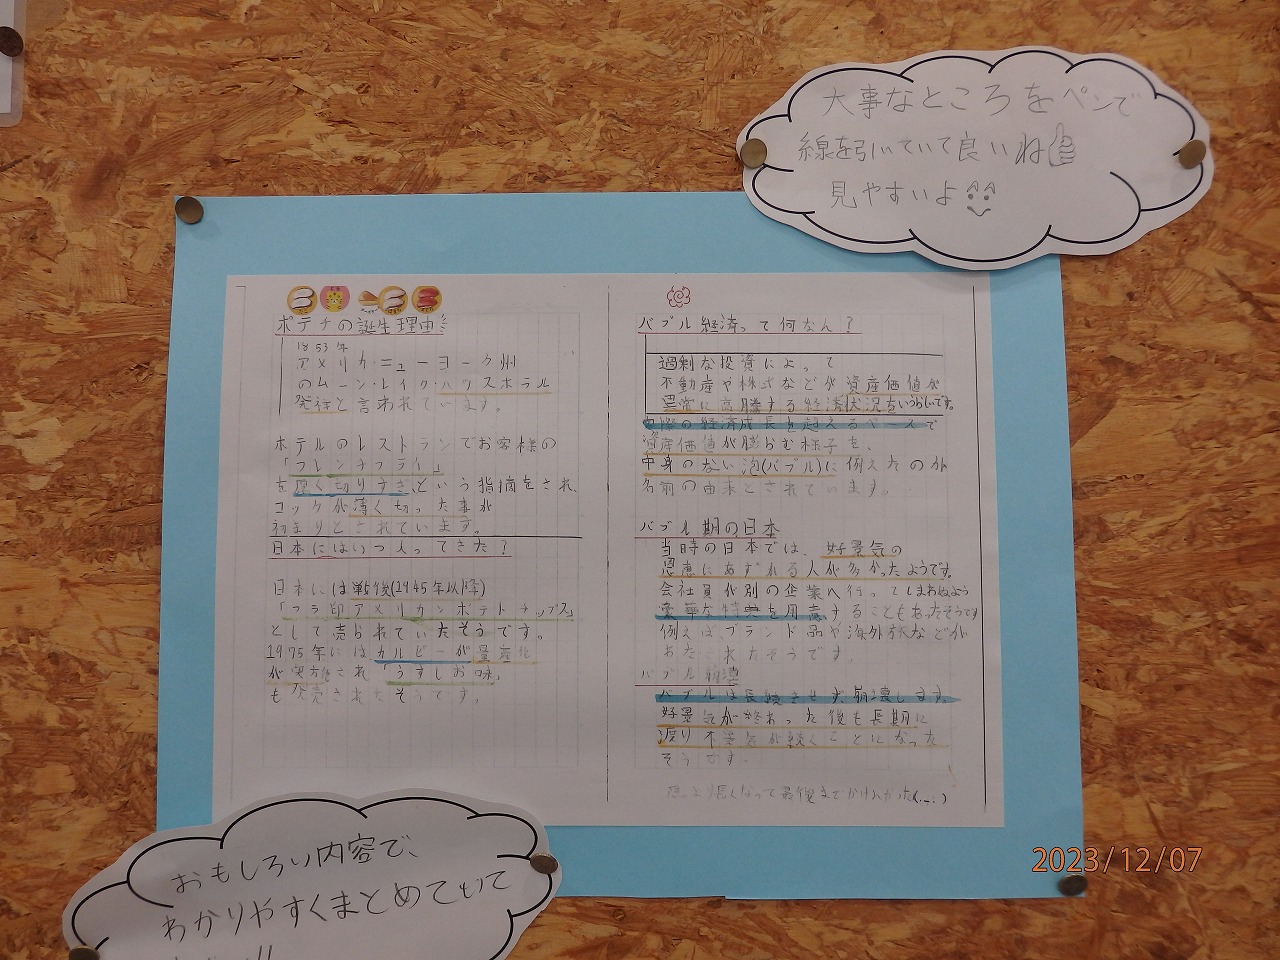 大事なところをペンで
線を引いていて良いね
見やすいよ
ポテチの誕生理由
1853年
アメリカ・ニューヨーク州
のムーン・レイク・ハウスホテル
発祥と言われています。
ホテルのレストランでお客様の
「フレンチフライ」
を厚く切りすぎ、という指摘をされ、
コックが薄く切った事が
初まりとされています。
日本にはいつ入ってきた？
日本には戦後(1945年以降)
「フラ印アメリカンポテトチップス」
として売られていたそうです。
1975年にはカルビーが量産化
され「うすしお味」
も発売されたそうです。
バブル経済って何なん？
過剰な投資によって
不動産や株式などが資産価値が
異常に高騰する経済状況をいうらしいです。
実際の経済成長を超えるペースで
資産価値が膨らむ様子を、
中身のない泡(バブル)に例えたのが
名前の由来とされています。
バブル期の日本
当時の日本では、好景気の
恩恵にあずかれる人が多かったようです。
会社員が別の企業へ行ってしまわぬよう
豪華な特典を用意することもあったそうです
例えば、ブランド品や海外旅などが
そうです。
バブル崩壊
バブルは長続きせず、崩壊します。
好景気が終わった後も長期に
渡り不景気が続くことになった
そうです。
長くなって最後までかけなかった(._.)
おもしろい内容で、
わかりやすくまとめていて
2023/12/07